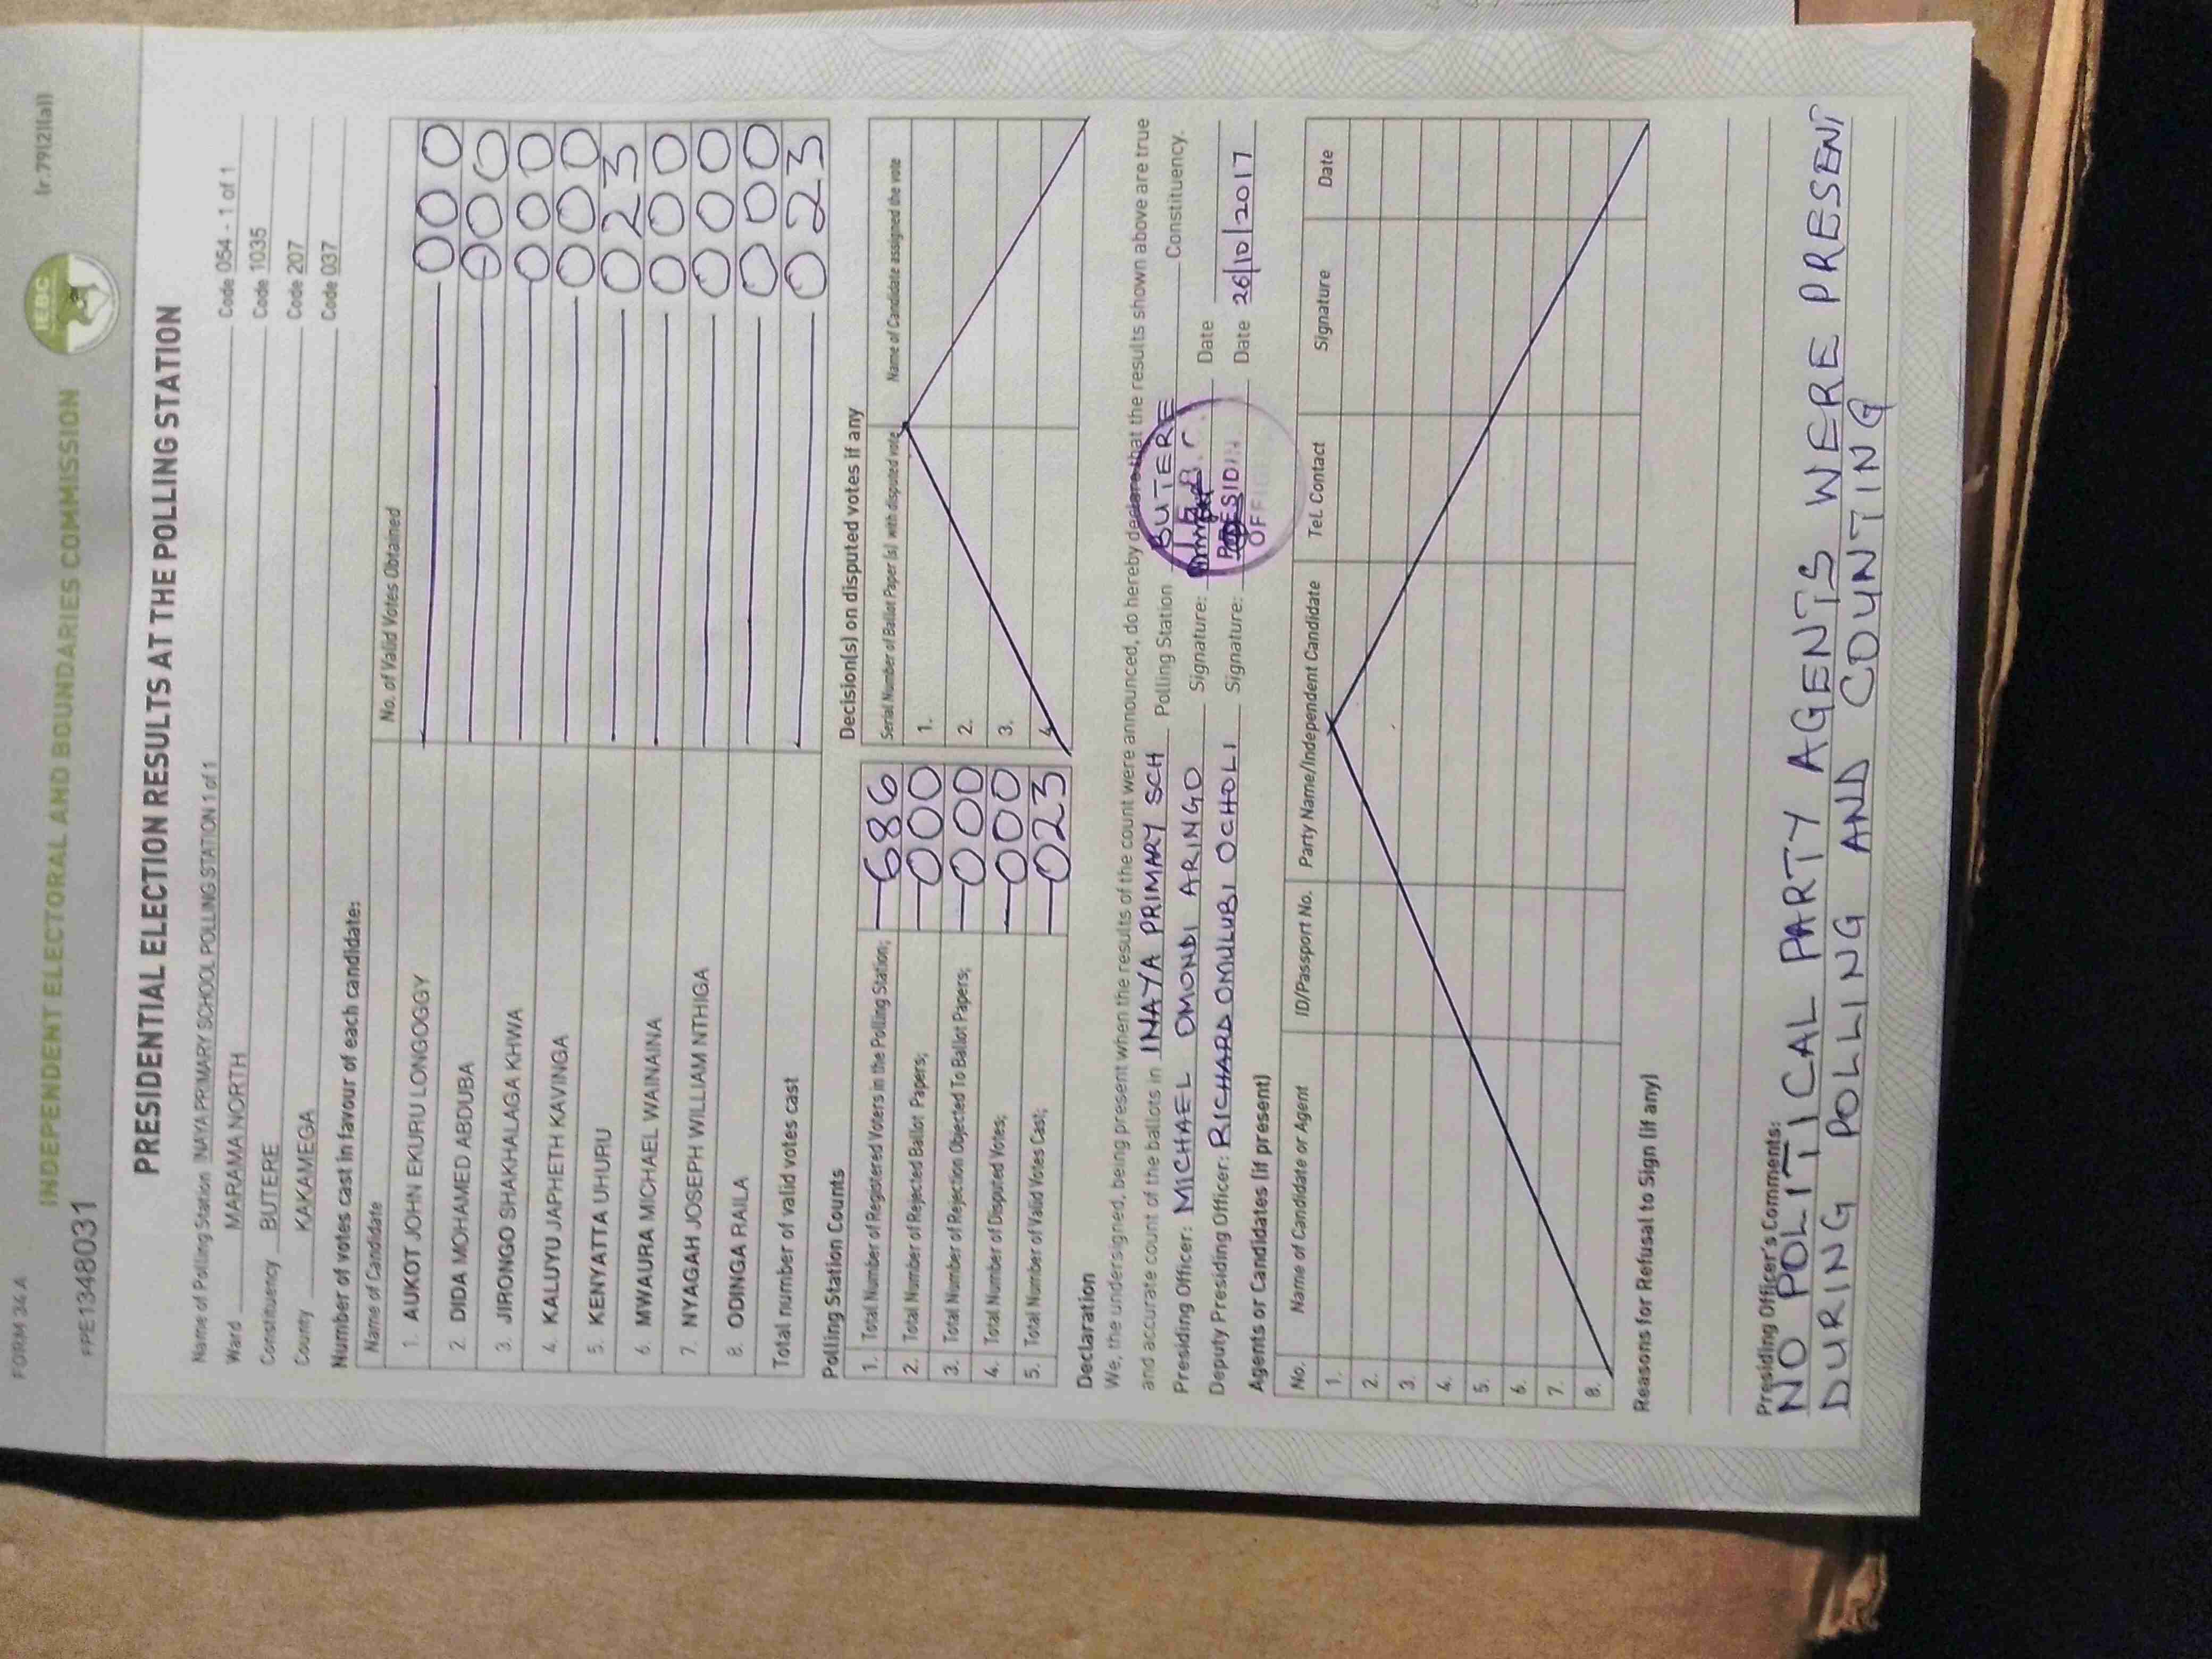 FORM 34 A
(r.79(2)(a))
INDEPENDENT ELECTORAL AND BOUNDARIES COMMISSION
IEBC
PPE1348031
PRESIDENTIAL ELECTION RESULTS AT THE POLLING STATION
Name of Polling Station INAYA PRIMARY SCHOOL POLLING STATION 1 of 1 Code 054 - 1 of 1
Ward MARAMA NORTH Code 1035
Constituency BUTERE Code 207
County KAKAMEGA Code 037
Number of votes cast in favour of each candidate:
Name of Candidate No. of Valid Votes Obtained
1. AUKOT JOHN EKURU LONGOGGY 000
2. DIDA MOHAMED ABDUBA 000
3. JIRONGO SHAKHALAGA KHWA 000
4. KALUYU JAPHETH KAVINGA 000
5. KENYATTA UHURU 023
6. MWAURA MICHAEL WAINAINA 000
7. NYAGAH JOSEPH WILLIAM NTHIGA 000
8. ODINGA RAILA 000
Total number of valid votes cast 023
Polling Station Counts
1. Total Number of Registered Voters in the Polling Station; 686
2. Total Number of Rejected Ballot Papers; 000
3. Total Number of Rejection Objected To Ballot Papers; 000
4. Total Number of Disputed Votes; 000
5. Total Number of Valid Votes Cast; 023
Decision(s) on disputed votes if any
Serial Number of Ballot Paper (s) with disputed vote Name of Candidate assigned the vote
1.
2.
3.
4.
Declaration
We, the undersigned, being present when the results of the count were announced, do hereby declare that the results shown above are true
and accurate count of the ballots in INAYA PRIMARY SCH Polling Station BUTERE Constituency.
Presiding Officer: MICHAEL OMONDI ARINGO Signature: Date
Deputy Presiding Officer: RICHARD OMULUBI OCHOLI Signature: Date 26/10/2017
Agents or Candidates (if present)
No. Name of Candidate or Agent ID/Passport No. Party Name/Independent Candidate Tel. Contact Signature Date
1.
2.
3.
4.
5.
6.
7.
8.
Reasons for Refusal to Sign (if any)
Presiding Officer's Comments:
NO POLITICAL PARTY AGENTS WERE PRESENT
DURING POLLING AND COUNTING